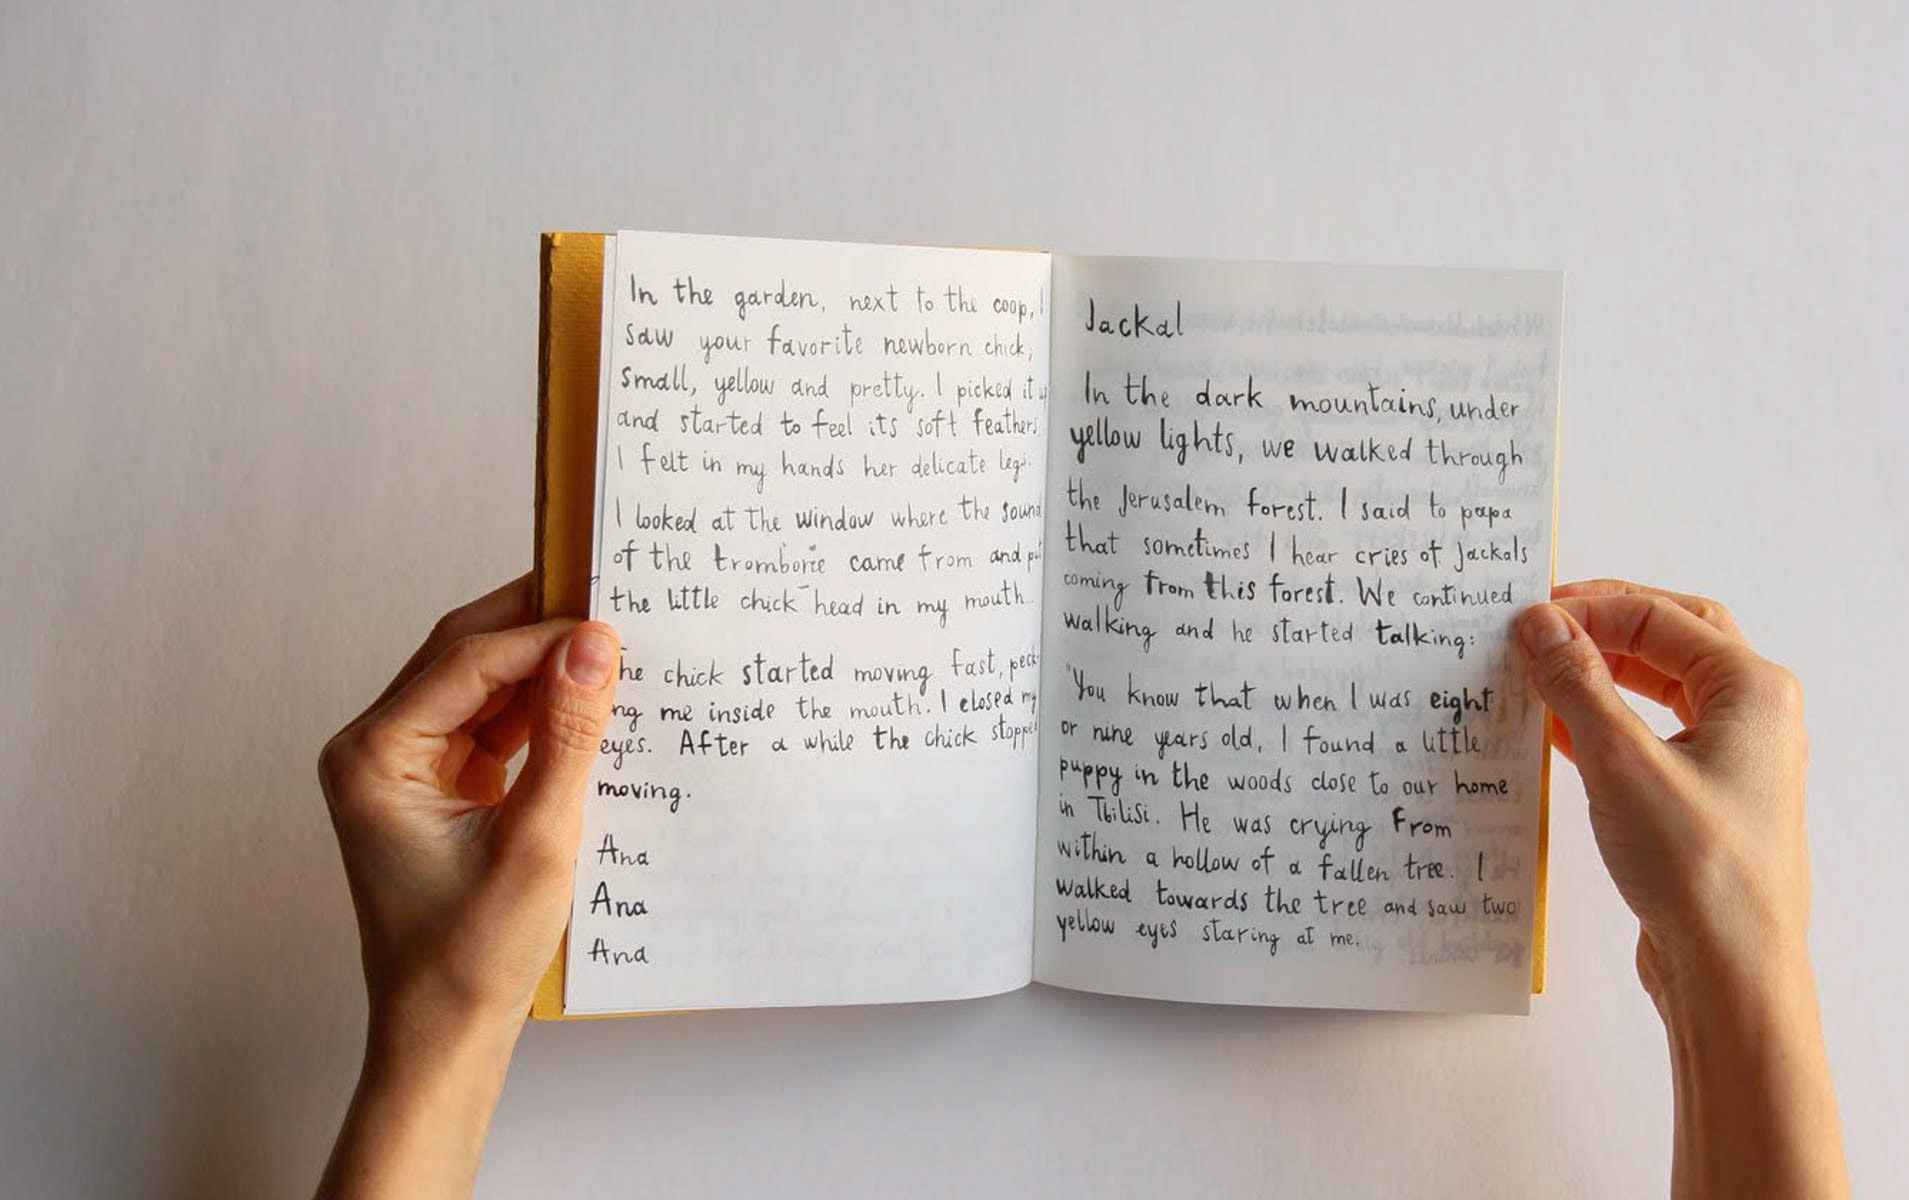 In the garden, next to the coop, I
saw your favorite newborn chick,
small, yellow and pretty. I picked it
and started to feel its soft feathers
I felt in my hands her delicate legs.
I looked at the window where the sound
of the trombone came from and put
the little chick head in my mouth.
The chick started moving fast, peck-
ing me inside the mouth. I closed my
eyes. After a while the chick stopped
moving.
Ana
Ana
Ana
Jackal
In the dark mountains, under
yellow lights, we walked through
the Jerusalem forest. I said to papa
that sometimes I hear cries of Jackals
coming from this forest. We continued
walking and he started talking:
"You know that when I was eight
or nine years old, I found a little
puppy in the woods close to our home
in Tbilisi. He was crying from
within a hollow of a fallen tree. I
walked towards the tree and saw two
yellow eyes staring at me.